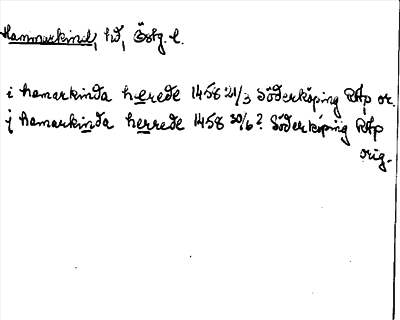 Hammarkind, hd, Östg. l.
i hamarkinda herede 1458 21/3 Söderköping RAp or.
j hamarkinda herrede 1458 30/6? Söderköping RAp
orig.